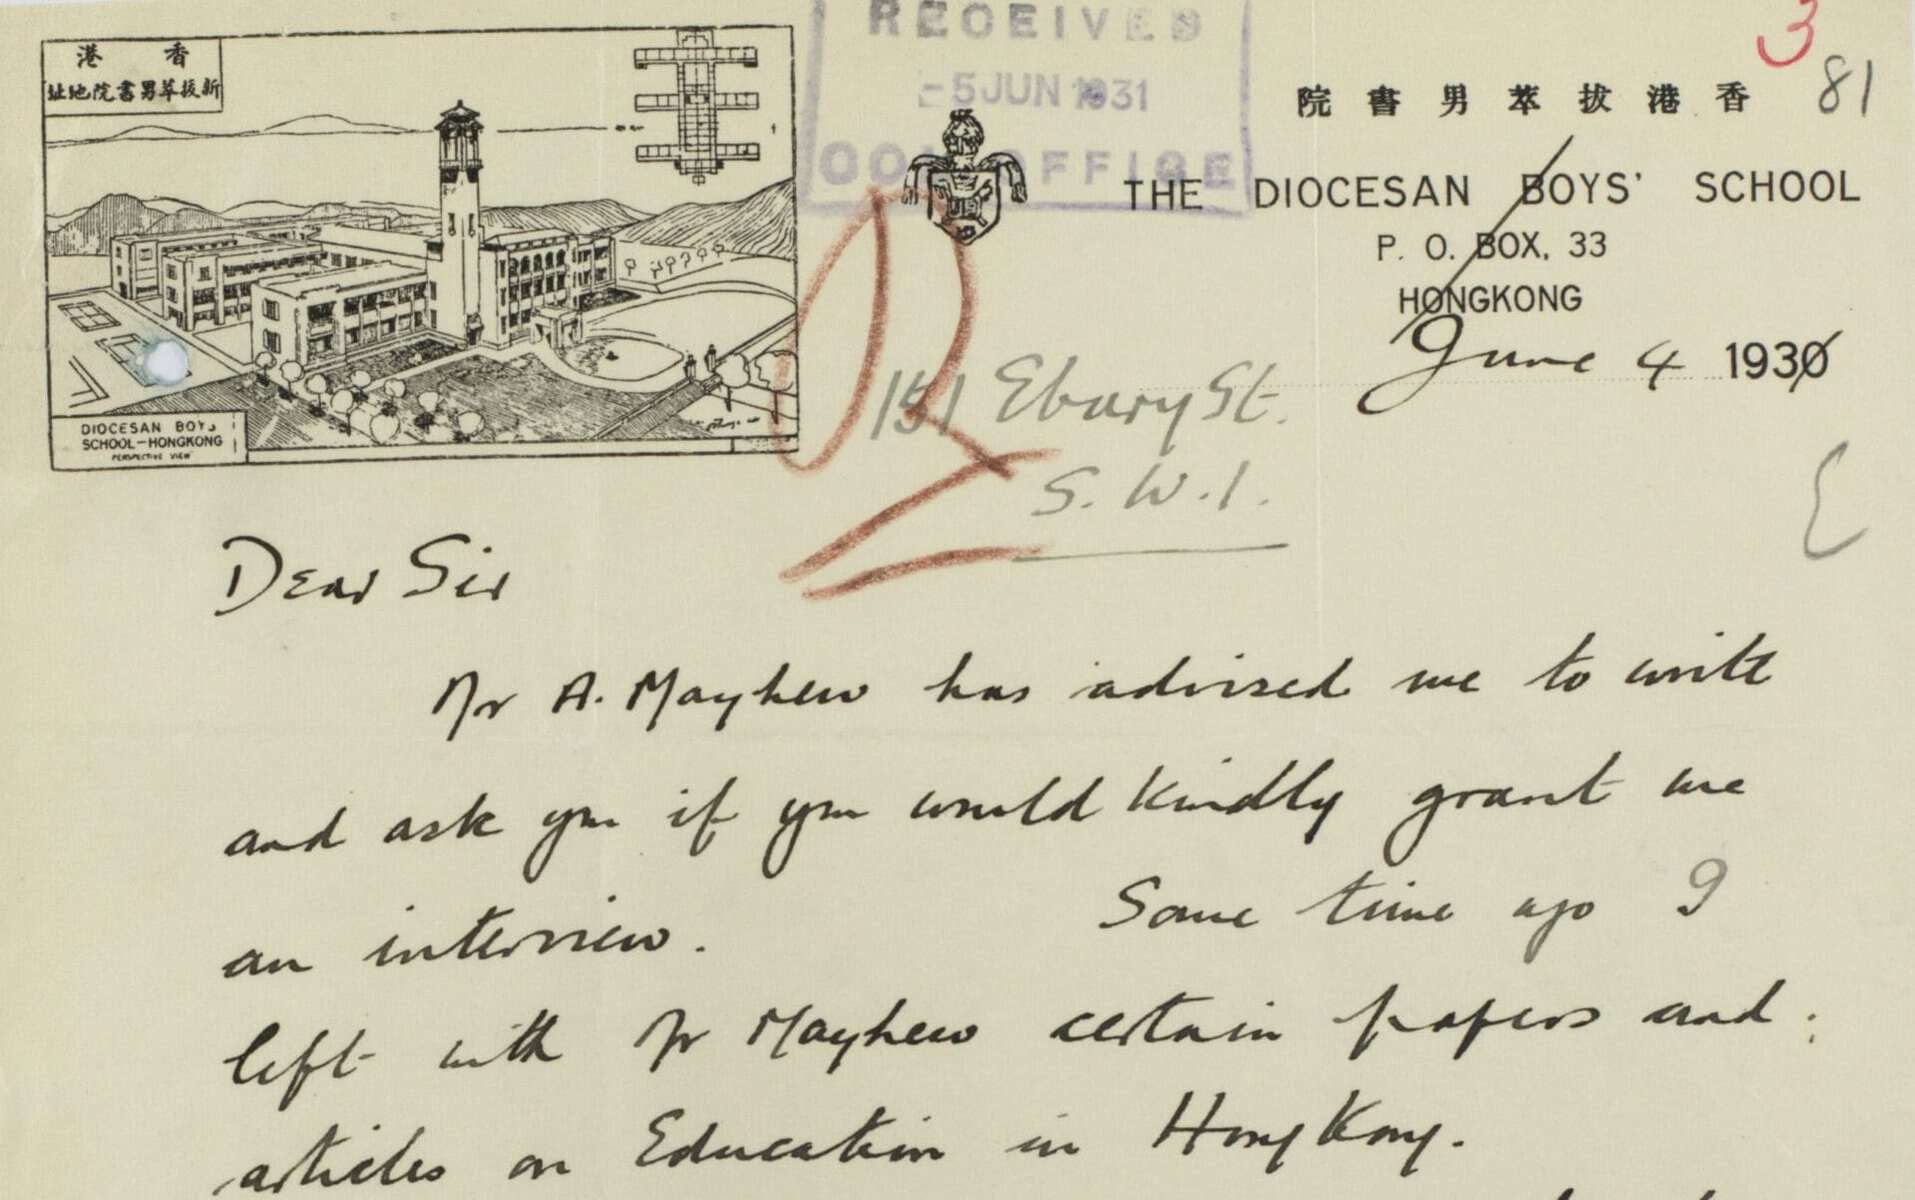 香港
新拔萃男書院地址
DIOCESAN BOYS
SCHOOL-HONGKONG
PERSPECTIVE VIEW
RECEIVED
-5 JUN 1931
COL OFFICE
3
81
香港拔萃男書院
THE DIOCESAN BOYS' SCHOOL
P. O. BOX, 33
HONGKONG
June 4 1930
151 Ebury St.
S. W. 1.
Dear Sir
Mr A. Mayhew has advised me to write
and ask you if you would kindly grant me
an interview. Some time ago I
left with Mr Mayhew certain papers and
articles on Education in Hong Kong.